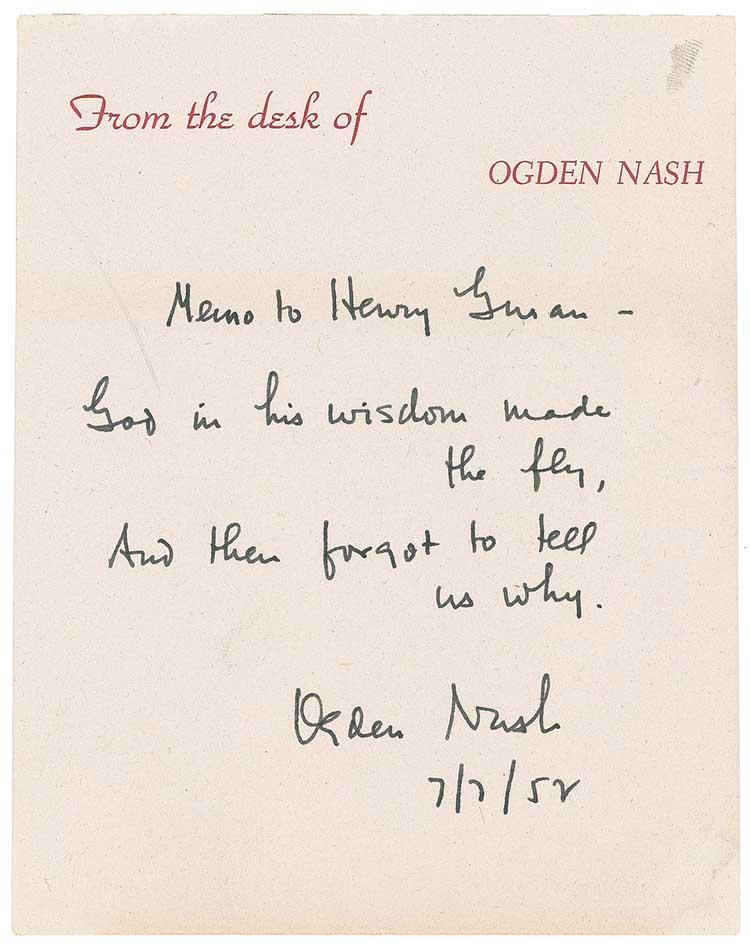 From the desk of
OGDEN NASH
Memo to Henry –
God in his wisdom made
the fly,
And then forgot to tell
us why.
Ogden Nash
7/7/52